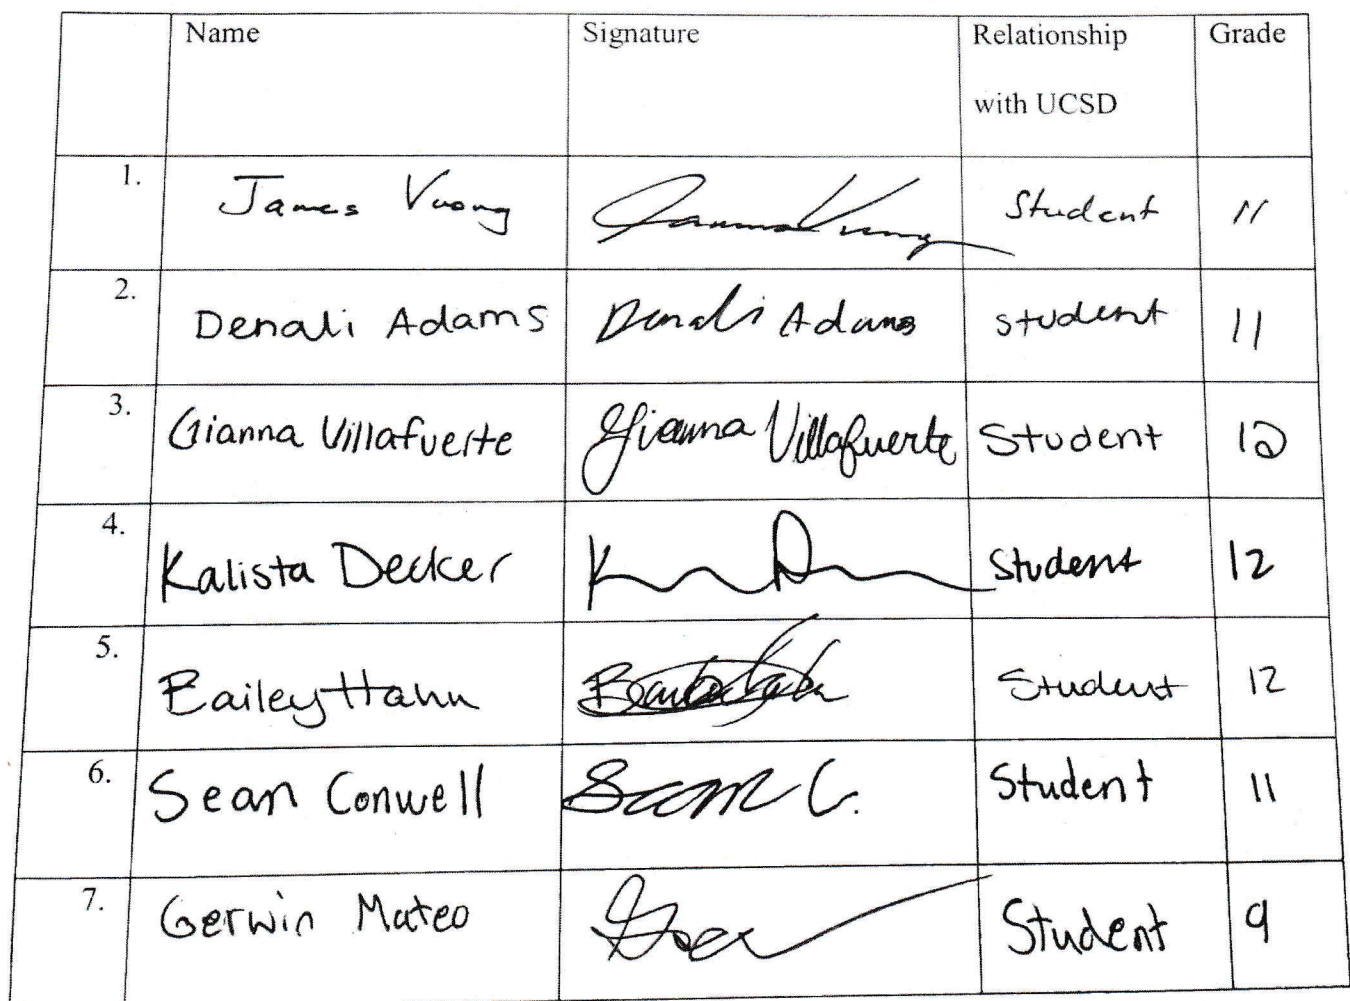 Name Signature Relationship Grade
with UCSD
1. James Vuong Student 11
2. Denali Adams Denali Adams student 11
3. Gianna Villafuerte Gianna Villafuerte Student 12
4. Kalista Decker Student 12
5. Bailey Hahn Student 12
6. Sean Conwell Sean C. Student 11
7. Gerwin Mateo Student 9